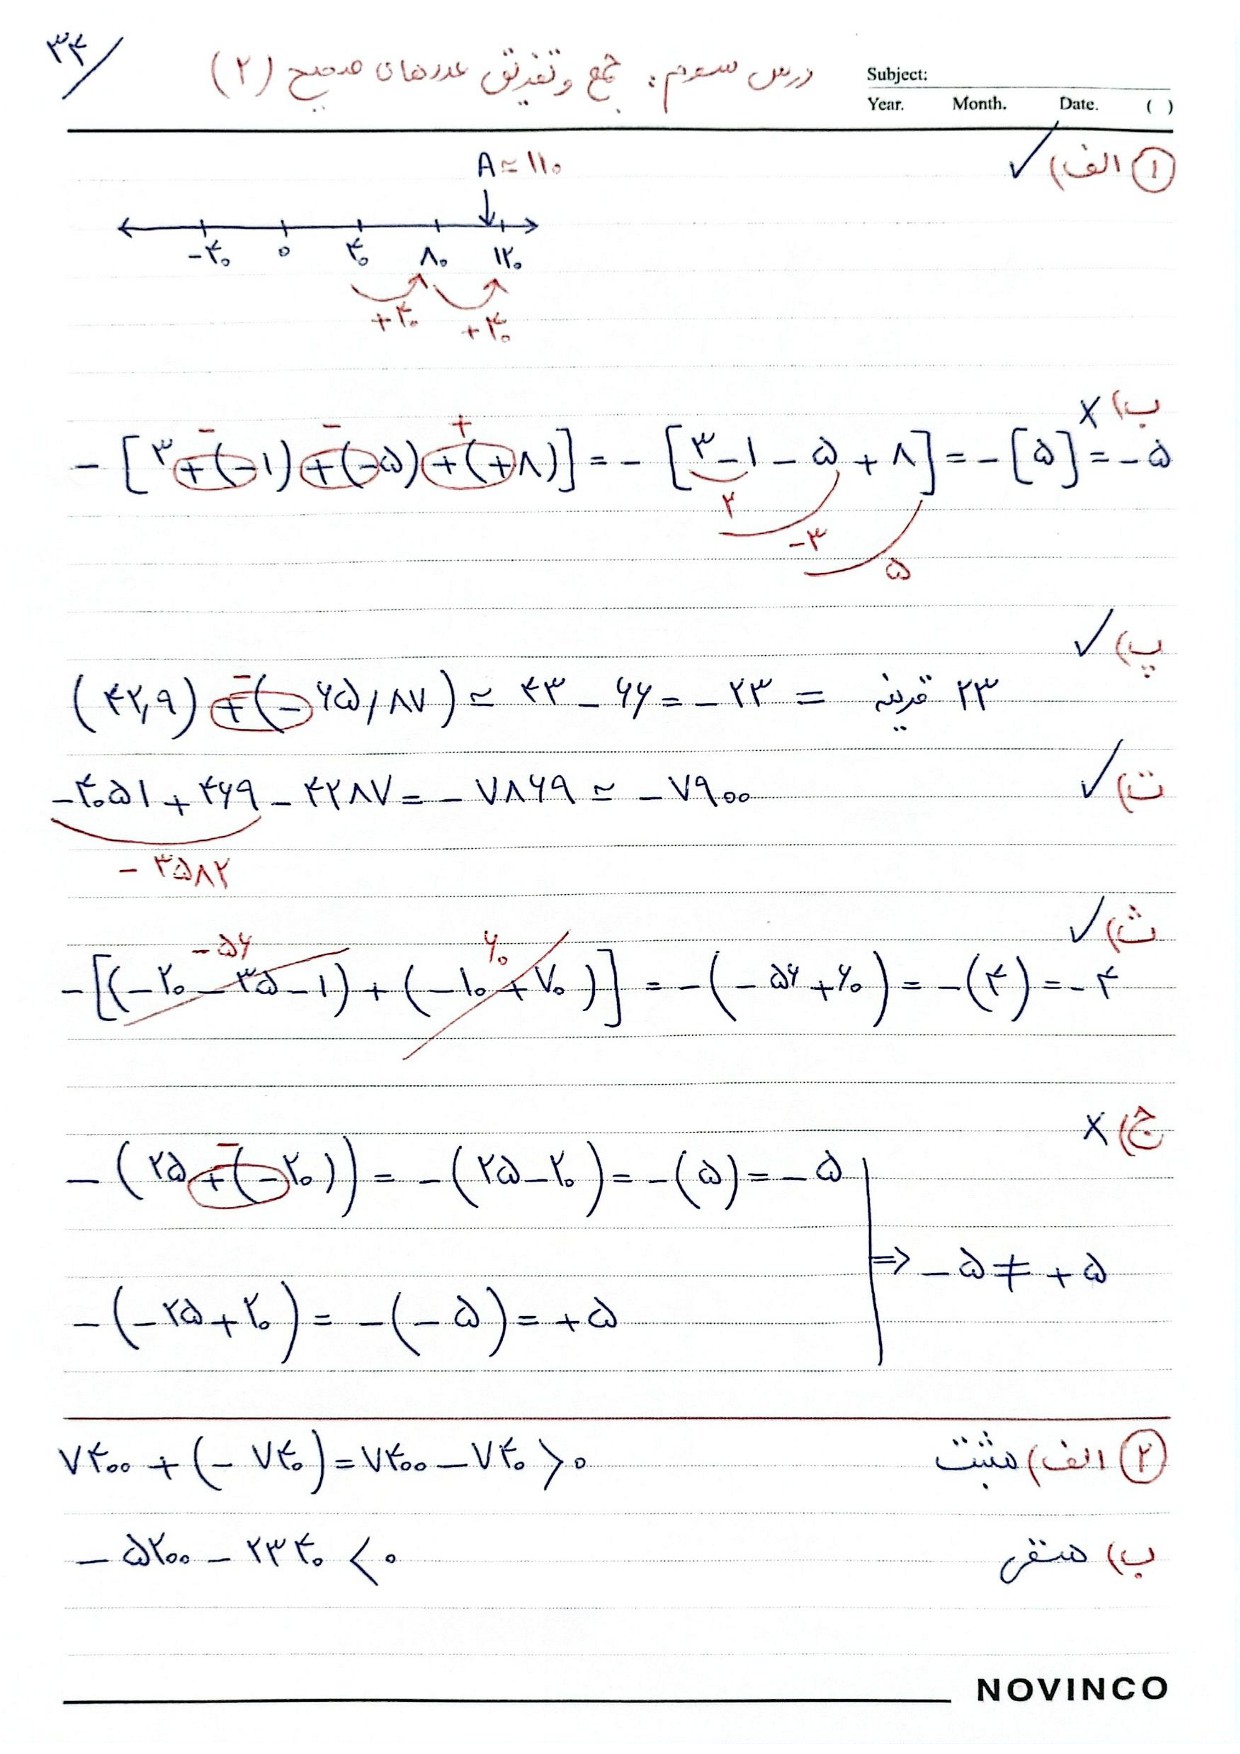 ۳۴/
درس سوم: جمع و تفریق عددهای صحیح (۲)
Subject:
Year. Month. Date. ( )
① الف) ✓
A ≃ ۱۱۰
-۴۰ ۰ ۴۰ ۸۰ ۱۲۰
+۴۰ +۴۰
ب) ×
- + -
- [۳+(-۱)+(-۵)+(+۸)] = - [۳-۱-۵+۸] = -[۵] = -۵
۲
-۳
۵
پ) ✓
-
(۴۲,۹)+(-۶۵/۸۷) ≃ ۴۳-۶۶ = -۲۳ = قرینه ۲۳
ت) ✓
-۴۰۵۱+۴۶۹-۴۲۸۷ = -۷۸۶۹ ≃ -۷۹۰۰
-۳۵۸۲
ث) ✓
-۵۶ ۶۰
-[(-۲۰-۳۵-۱)+(-۱۰+۷۰)] = -(-۵۶+۶۰) = -(۴) = -۴
ج) ×
-
-(۲۵+(-۲۰)) = -(۲۵-۲۰) = -(۵) = -۵
⇒ -۵ ≠ +۵
-(-۲۵+۲۰) = -(-۵) = +۵
② الف) مثبت
۷۴۰۰+(-۷۴۰) = ۷۴۰۰-۷۴۰ > ۰
ب) منفی
-۵۲۰۰-۲۳۴۰ < ۰
NOVINCO